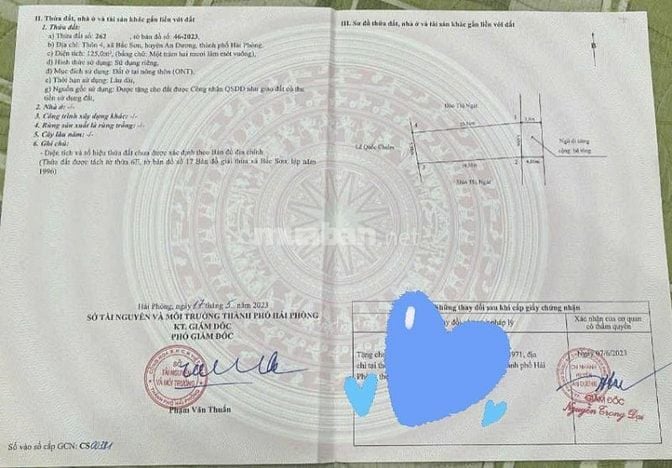 II. Thửa đất, nhà ở và tài sản khác gắn liền với đất
1. Thửa đất:
a) Thửa đất số: 262 , tờ bản đồ số: 46-2023,
b) Địa chỉ: Thôn 4, xã Bắc Sơn, huyện An Dương, thành phố Hải Phòng.
c) Diện tích: 125,0m², (bằng chữ: Một trăm hai mươi lăm mét vuông),
d) Hình thức sử dụng: Sử dụng riêng,
đ) Mục đích sử dụng: Đất ở tại nông thôn (ONT),
e) Thời hạn sử dụng: Lâu dài,
g) Nguồn gốc sử dụng: Được tặng cho đất được Công nhận QSDĐ như giao đất có thu
tiền sử dụng đất,
2. Nhà ở: -/-
3. Công trình xây dựng khác: -/-
4. Rừng sản xuất là rừng trồng: -/-
5. Cây lâu năm: -/-
6. Ghi chú:
- Diện tích và số hiệu thửa đất chưa được xác định theo Bản đồ địa chính.
(Thửa đất được tách từ thửa tờ bản đồ số 17 Bản đồ giải thửa xã Bắc Sơn, lập năm
1996)
Hải Phòng, ngày 17 tháng 5 năm 2023
SỞ TÀI NGUYÊN VÀ MÔI TRƯỜNG THÀNH PHỐ HẢI PHÒNG
KT. GIÁM ĐỐC
PHÓ GIÁM ĐỐC
SỞ
TÀI NGUYÊN
VÀ MÔI TRƯỜNG
Phạm Văn Thuấn
Số vào sổ cấp GCN: CS
III. Sơ đồ thửa đất, nhà ở và tài sản khác gắn liền với đất
B
Đào Thị Ngát
4
1
Lê Quốc Chuẩn
Ngõ đi
rộng
3
2
Đào Thị Ngát
muaban.net
Những thay đổi sau khi cấp giấy chứng nhận
pháp lý
Xác nhận của cơ quan
có thẩm quyền
Tặng cho 1971, địa
chỉ tại thành phố Hải
07/6/2023
CHI NHÁNH
HUYỆN
AN DƯƠNG
GIÁM ĐỐC
Nguyễn Trọng Đại